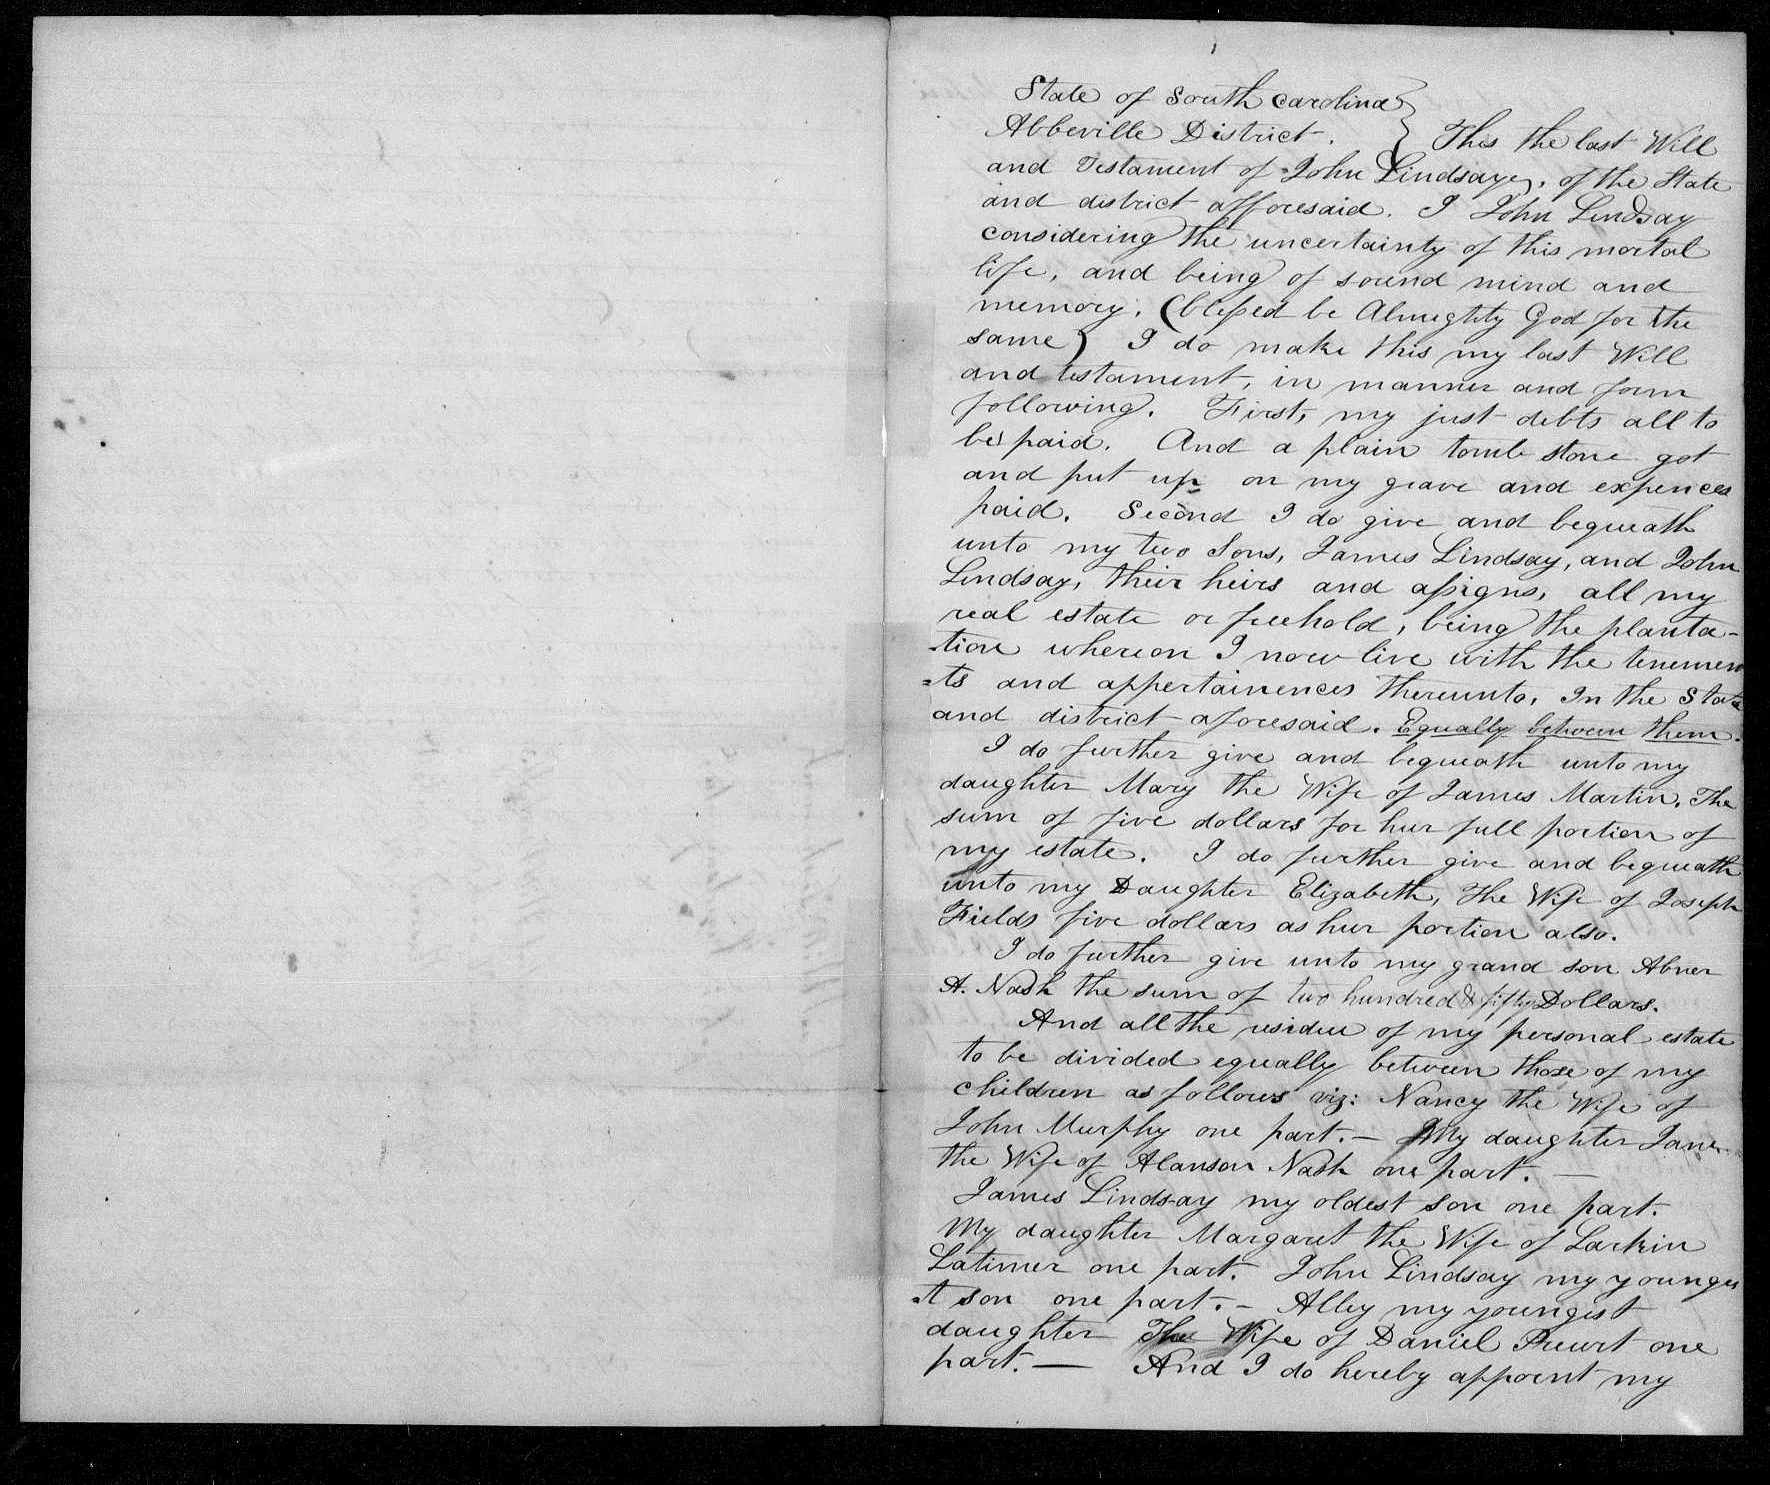 State of South Carolina
Abbeville District. } This the last Will
and Testament of John Lindsaye, of the State
and district afforesaid. I John Lendsay
considering the uncertainty of this mortal
life, and being of sound mind and
memory. (blessed be Almughty God for the
same) I do make this my last Will
and testament, in manner and form
following. First, my just debts all to
be paid. And a plain tomb stone got
and put up on my grave and expences
paid. Second I do give and bequeath
unto my two Sons, James Lindsay, and John
Lindsay, their heirs and assigns, all my
real estate or freehold, being the planta-
-tion whereon I now live with the tenemen
=ts and appertainences thereunto, In the State
and district aforesaid. Equally between them.
I do further give and bequeath unto my
daughter Mary the Wife of James Martin. The
sum of five dollars for hur full portion of
my estate. I do further give and bequeath
unto my Daughter Elizabeth, The Wife of Joseph
Fields five dollars as hur portion also.
I do further give unto my grand son Abner
A. Nash the sum of two hundred & fifty Dollars.
And all the residue of my personal estate
to be divided equally between those of my
children as follows viz: Nancy the Wife of
John Murphy one part. — My daughter Jane
the Wife of Alanson Nash one part. —
James Lindsay my oldest son one part.
My daughter Margaret the Wife of Larkin
Latimer one part. John Lindsay my younges
-t son one part. - Alley my youngist
daughter The Wife of Daniel Pruert one
part. — And I do hereby appoint my